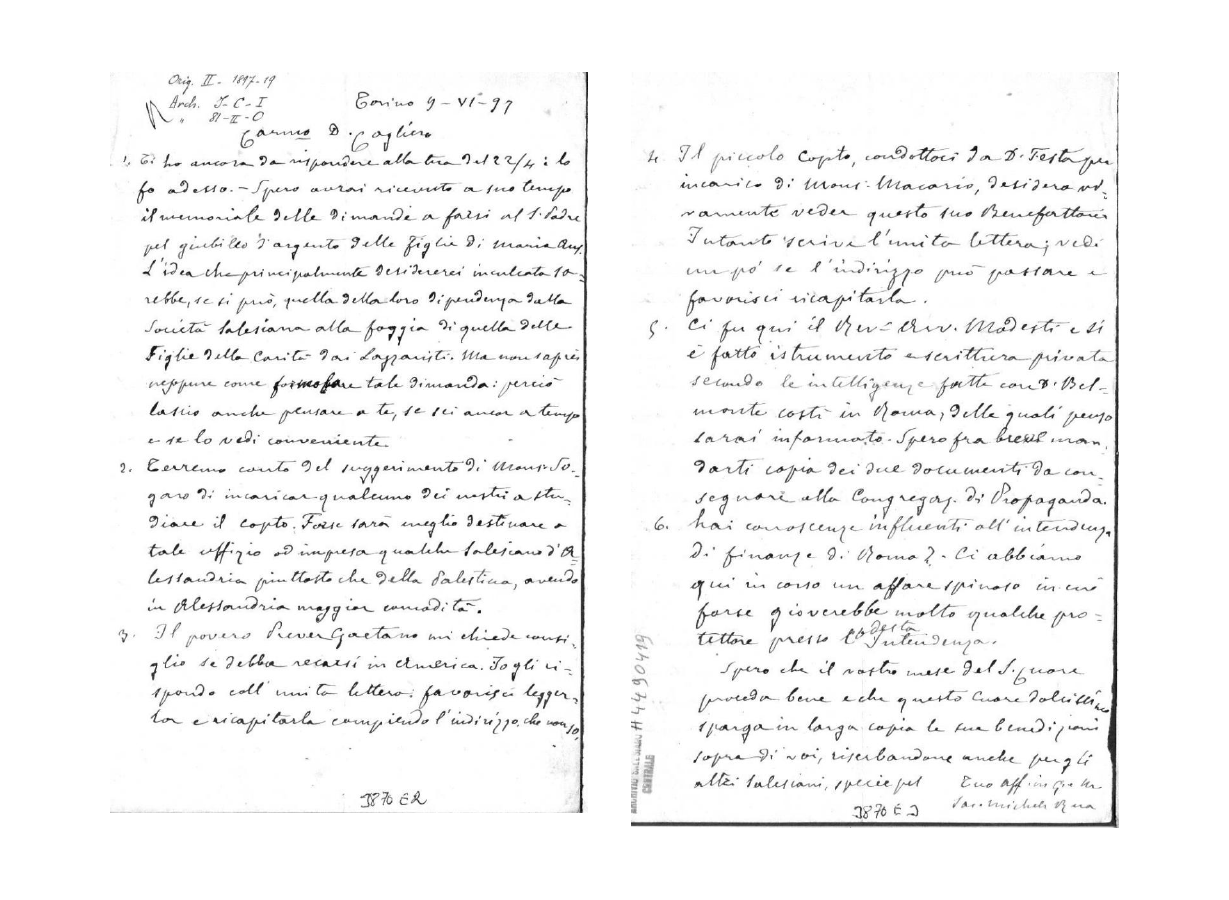 Orig. II - 1897-19
Arch. J-C-I
" 81-II-O
Torino 9-VI-97
Carmo D. Cagliero
1. Ti ho ancora da rispondere alla tua del 22/4: lo
fo adesso. - Spero avrai ricevuto a suo tempo
il memoriale delle dimande a farsi al S. Padre
pel giubileo d'argento delle Figlie di Maria Aus.
L'idea che principalmente desidererei inculcata sa-
rebbe, se si può, quella della loro dipendenza dalla
Società Salesiana alla foggia di quella delle
Figlie della Carità dai Lazzaristi. Ma non saprei
neppure come fare tale dimanda: perciò
lascio anche pensare a te, se sei ancor a tempo
e se lo vedi conveniente.
2. Terremo conto del suggerimento di Mons. So-
garo di incaricar qualcuno dei nostri a stu-
diare il copto. Forse sarà meglio destinare a
tale uffizio od impresa qualche Salesiano d'A-
lessandria piuttosto che della Palestina, avendo
in Alessandria maggior comodità.
3. Il povero Prever Gaetano mi chiede consi-
glio se debba recarsi in America. Io gli ri-
spondo coll'unita lettera: favorisci legger-
la e ricapitarla compiendo l'indirizzo, che non so.
3870 E2
4. Il piccolo Copto, condottoci da D. Festa per
incarico di Mons. Macario, desidera vi-
vamente veder questo suo Benefattore
Intanto scrive l'unita lettera; vedi
un pò se l'indirizzo può passare e
favorisci ricapitarla.
5. Ci fu qui il Rev. Avv. Modesti e si
è fatto istrumento e scrittura privata
secondo le intelligenze fatte con D. Bel-
monte costì in Roma, delle quali penso
sarai informato. Spero fra breve man-
darti copia dei due documenti da con-
segnare alla Congregaz. di Propaganda.
6. hai conoscenze influenti all'intendenza
di finanze di Roma? - Ci abbiamo
qui in corso un affare spinoso in cui
forse gioverebbe molto qualche pro-
tettore presso codesta Intendenza.
Spero che il vostro mese del S. Cuore
proceda bene e che questo Cuore dolcissimo
sparga in larga copia le sue benedizioni
sopra di voi, riserbandone anche per gli
altri Salesiani, specie pel Tuo aff in G. e M.
Sac. Michele Rua
3870 E3
H4490419
ARCHIVIO SALESIANO
CENTRALE